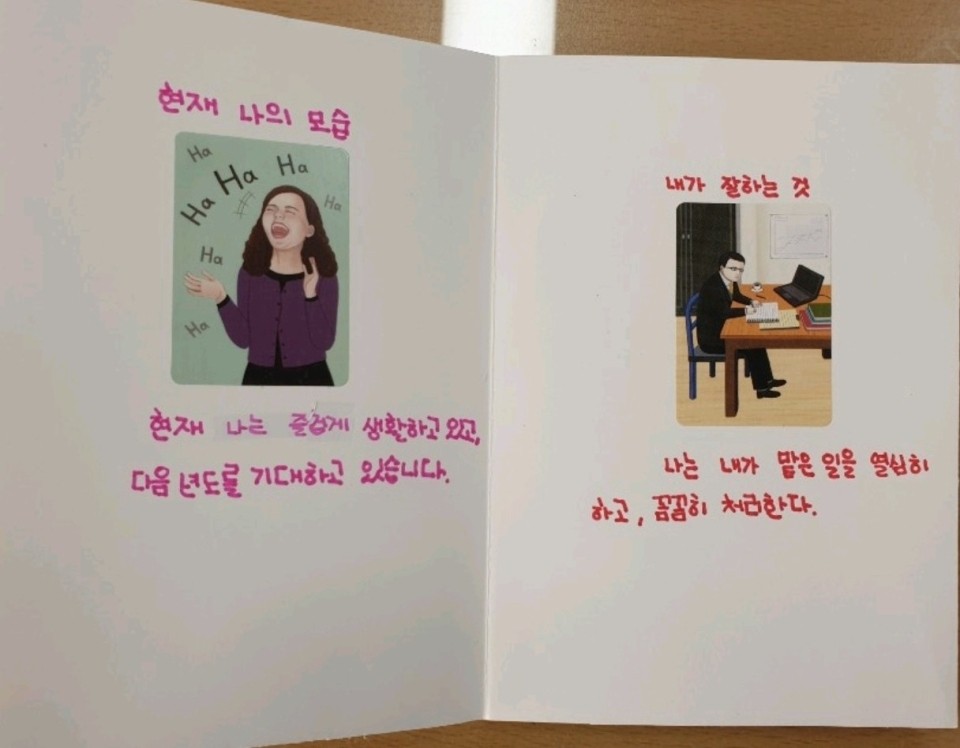 현재 나의 모습
Ha
Ha
Ha
Ha
Ha
Ha
Ha
현재 나는 즐겁게 생활하고 있고,
다음 년도를 기대하고 있습니다.
내가 잘하는 것
나는 내가 맡은 일을 열심히
하고, 꼼꼼히 처리한다.